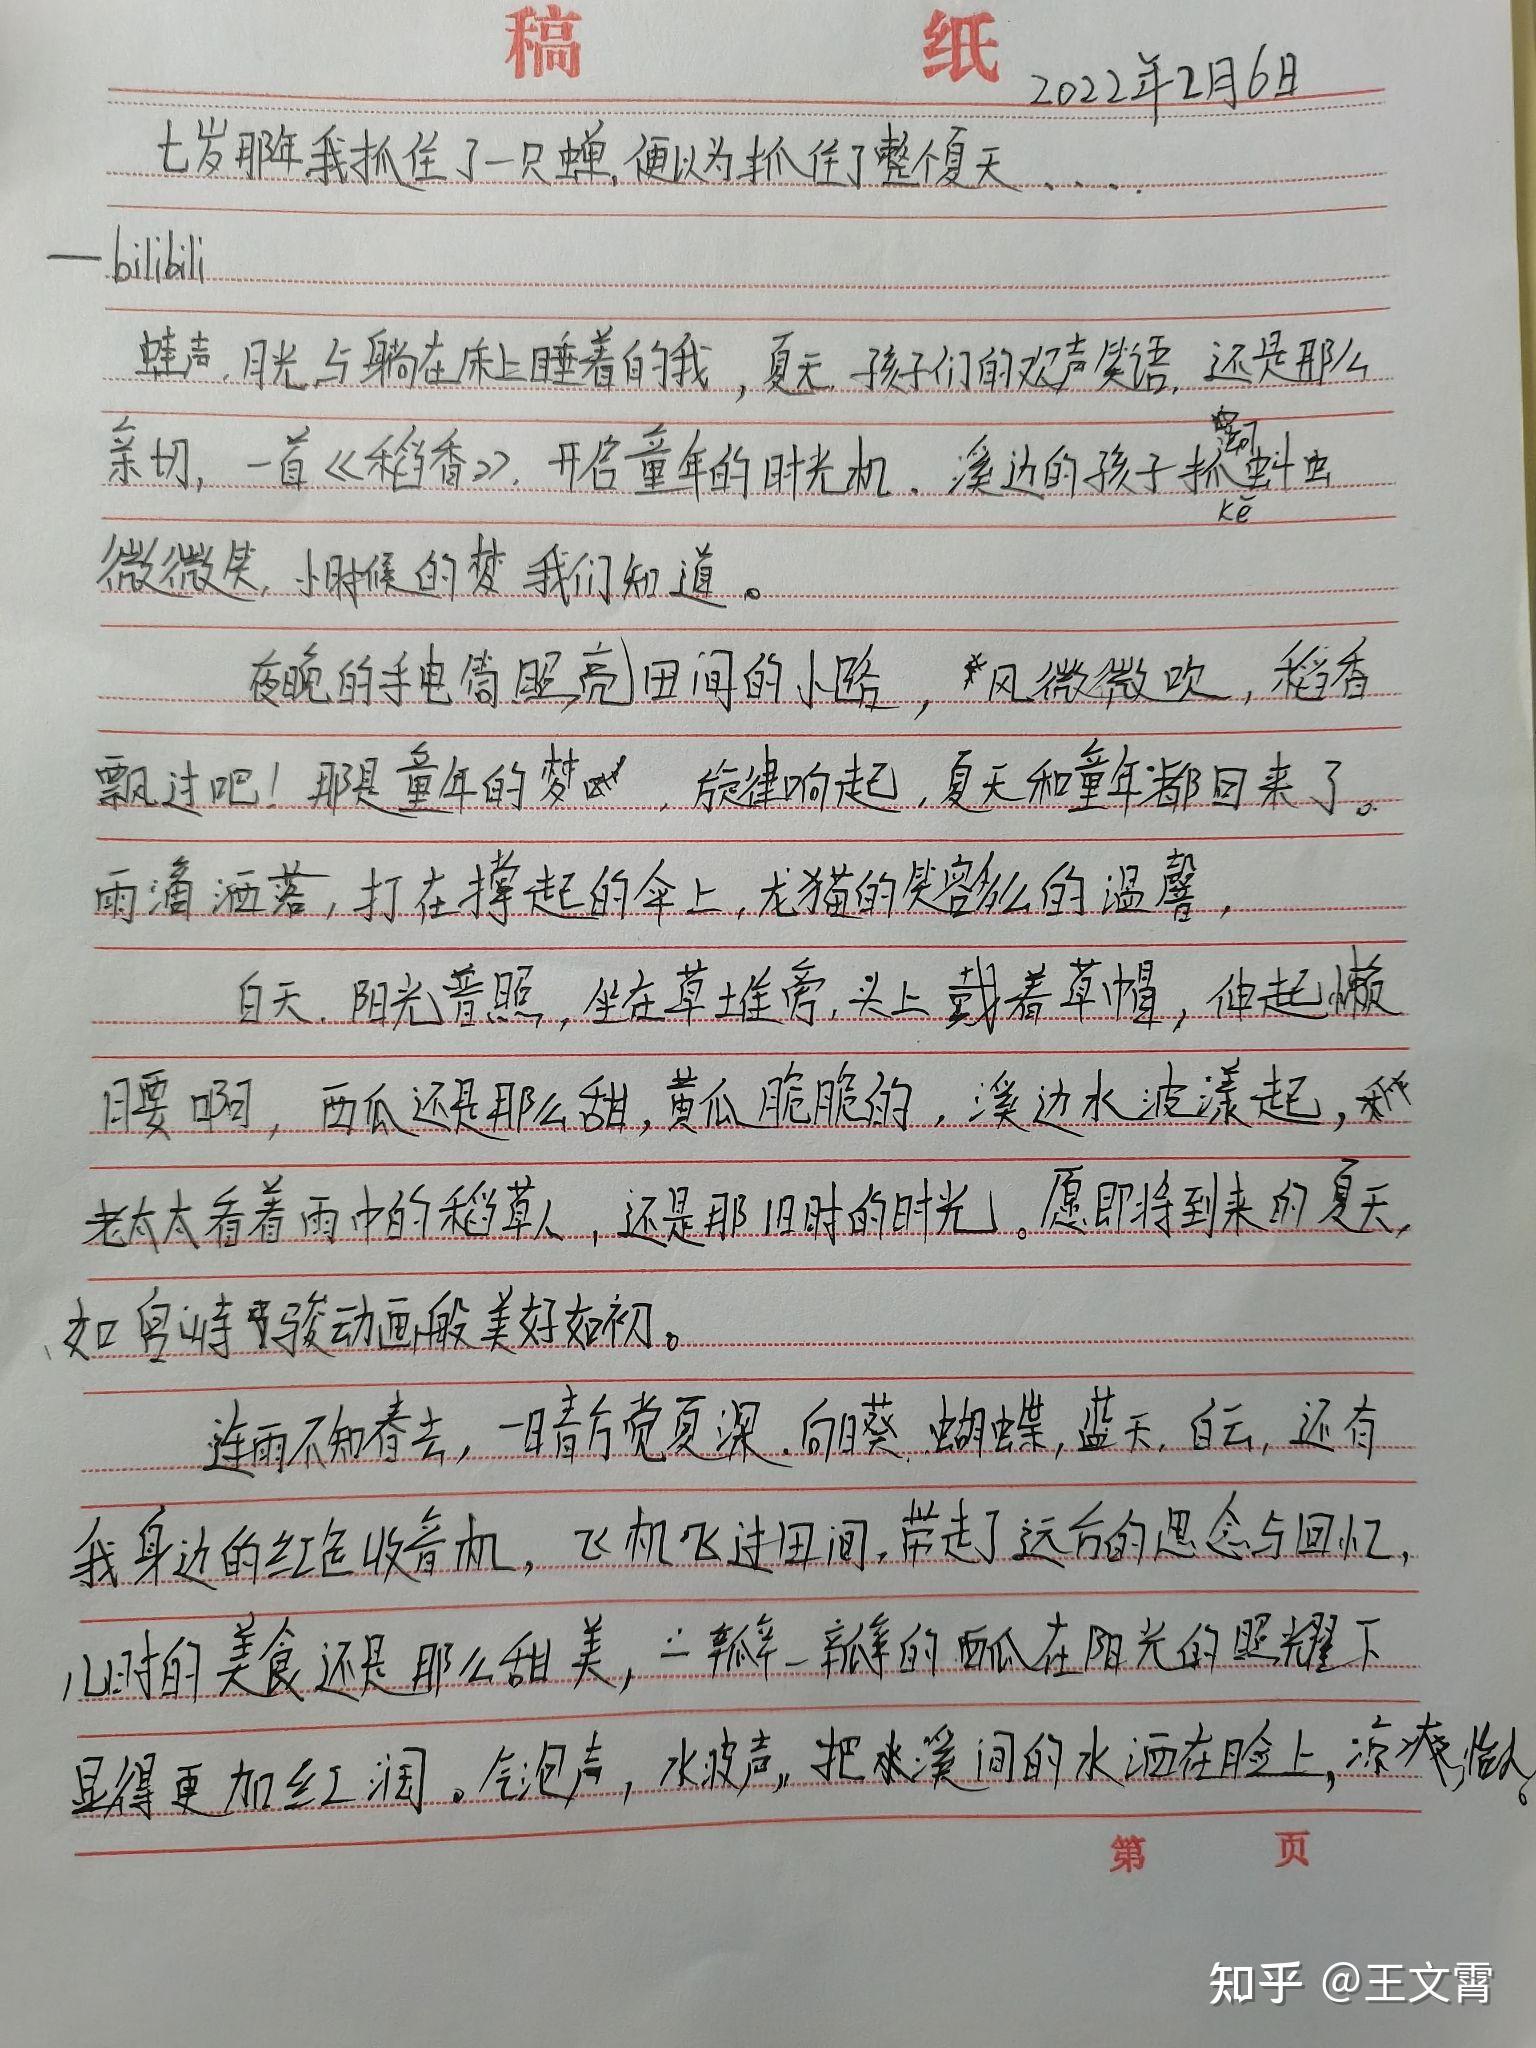 稿 纸
2022年2月6日
七岁那年,我抓住了一只蝉,便以为抓住了整个夏天....
—bilibili
蛙声,月光与躺在床上睡着的我,夏天,孩子们的欢声笑语,还是那么
亲切,一首《稻香》,开启童年的时光机,溪边的孩子抓蝌蚪
kē
微微笑,小时候的梦我们知道。
夜晚的手电筒照亮田间的小路,风微微吹,稻香
飘过吧!那是童年的梦,旋律响起,夏天和童年都回来了。
雨滴洒落,打在撑起的伞上,龙猫的笑容多么的温馨,
白天,阳光普照,坐在草堆旁,头上戴着草帽,伸起懒
腰啊,西瓜还是那么甜,黄瓜脆脆的,溪边水波漾起,
老太太看着雨中的稻草人,还是那旧时的时光。愿即将到来的夏天,
如宫崎骏动画般美好如初。
连雨不知春去,一晴方觉夏深,向日葵,蝴蝶,蓝天,白云,还有
我身边的红色收音机,飞机飞过田间,带走了远方的思念与回忆,
儿时的美食还是那么甜美,一瓣一瓣的西瓜在阳光的照耀下
显得更加红润。气泡声,水波声,把溪间的水洒在脸上,凉爽怡人。
第 页
知乎 @王文霄